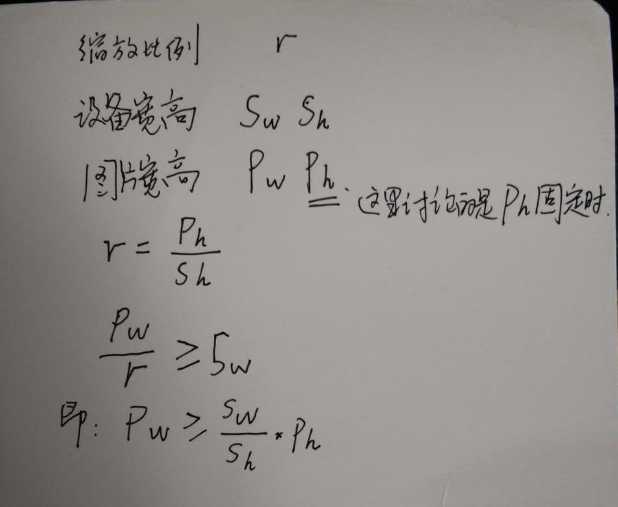 缩放比例 r
设备宽高 Sw Sh
图片宽高 Pw Ph. 这里讨论的是Ph固定时.
r = Ph/Sh
Pw/r ≥ Sw
即: Pw ≥ Sw/Sh · Ph